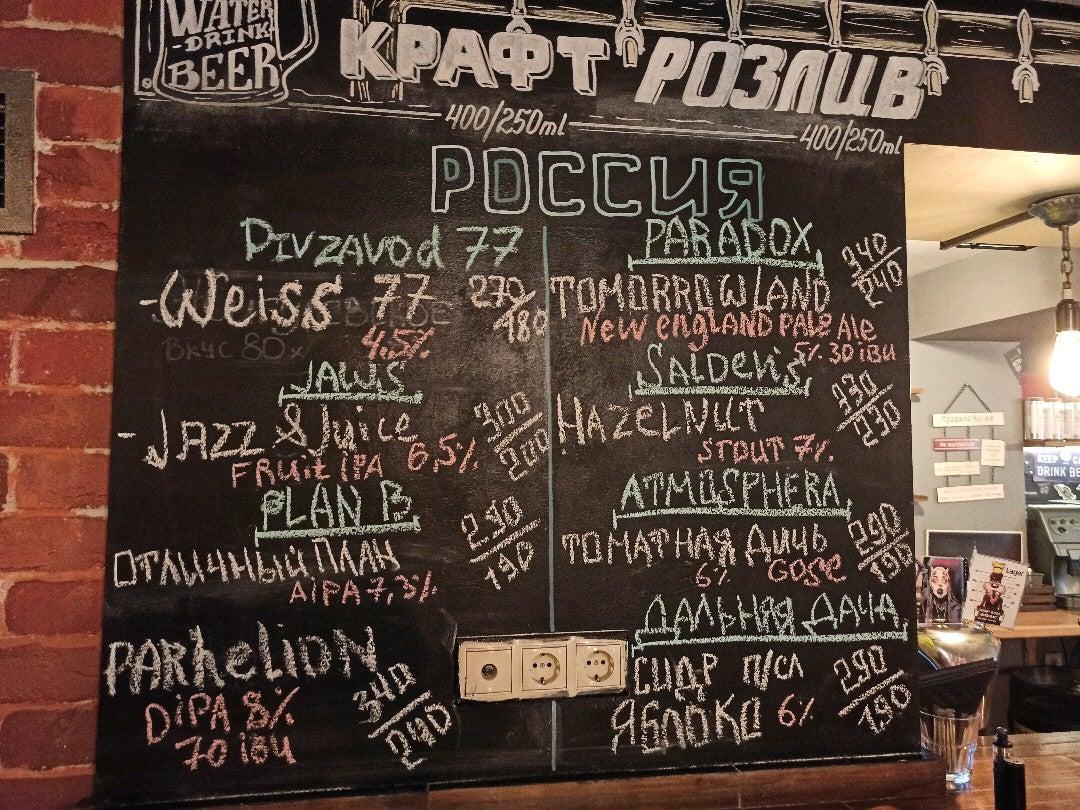 WATER
-DRINK-
BEER
КРАФТ РОЗЛИВ
400/250ml
400/250ml
РОССИЯ
Pivzavod 77
-Weiss 77 270/180
Вкус 80х
4.5%
JAWS
-Jazz & Juice 300/200
FRUIT IPA 6,5%
PLAN B
ОТЛИЧНЫЙ ПЛАН 290/190
AIPA 7,3%
PARHELION
DIPA 8% 340/240
70 IBU
PARADOX
TOMORROWLAND 340/240
NEW ENGLAND PALE ALE
5% 30 IBU
SALDENS
HAZELNUT 330/230
STOUT 7%
ATMOSPHERA
ТОМАТНАЯ ДИЧЬ 290/190
6% GOSE
ДАЛЬНЯЯ ДАЧА
СИДР П/СЛ 290/190
ЯБЛОКО 6%
Lager
DRINK BE